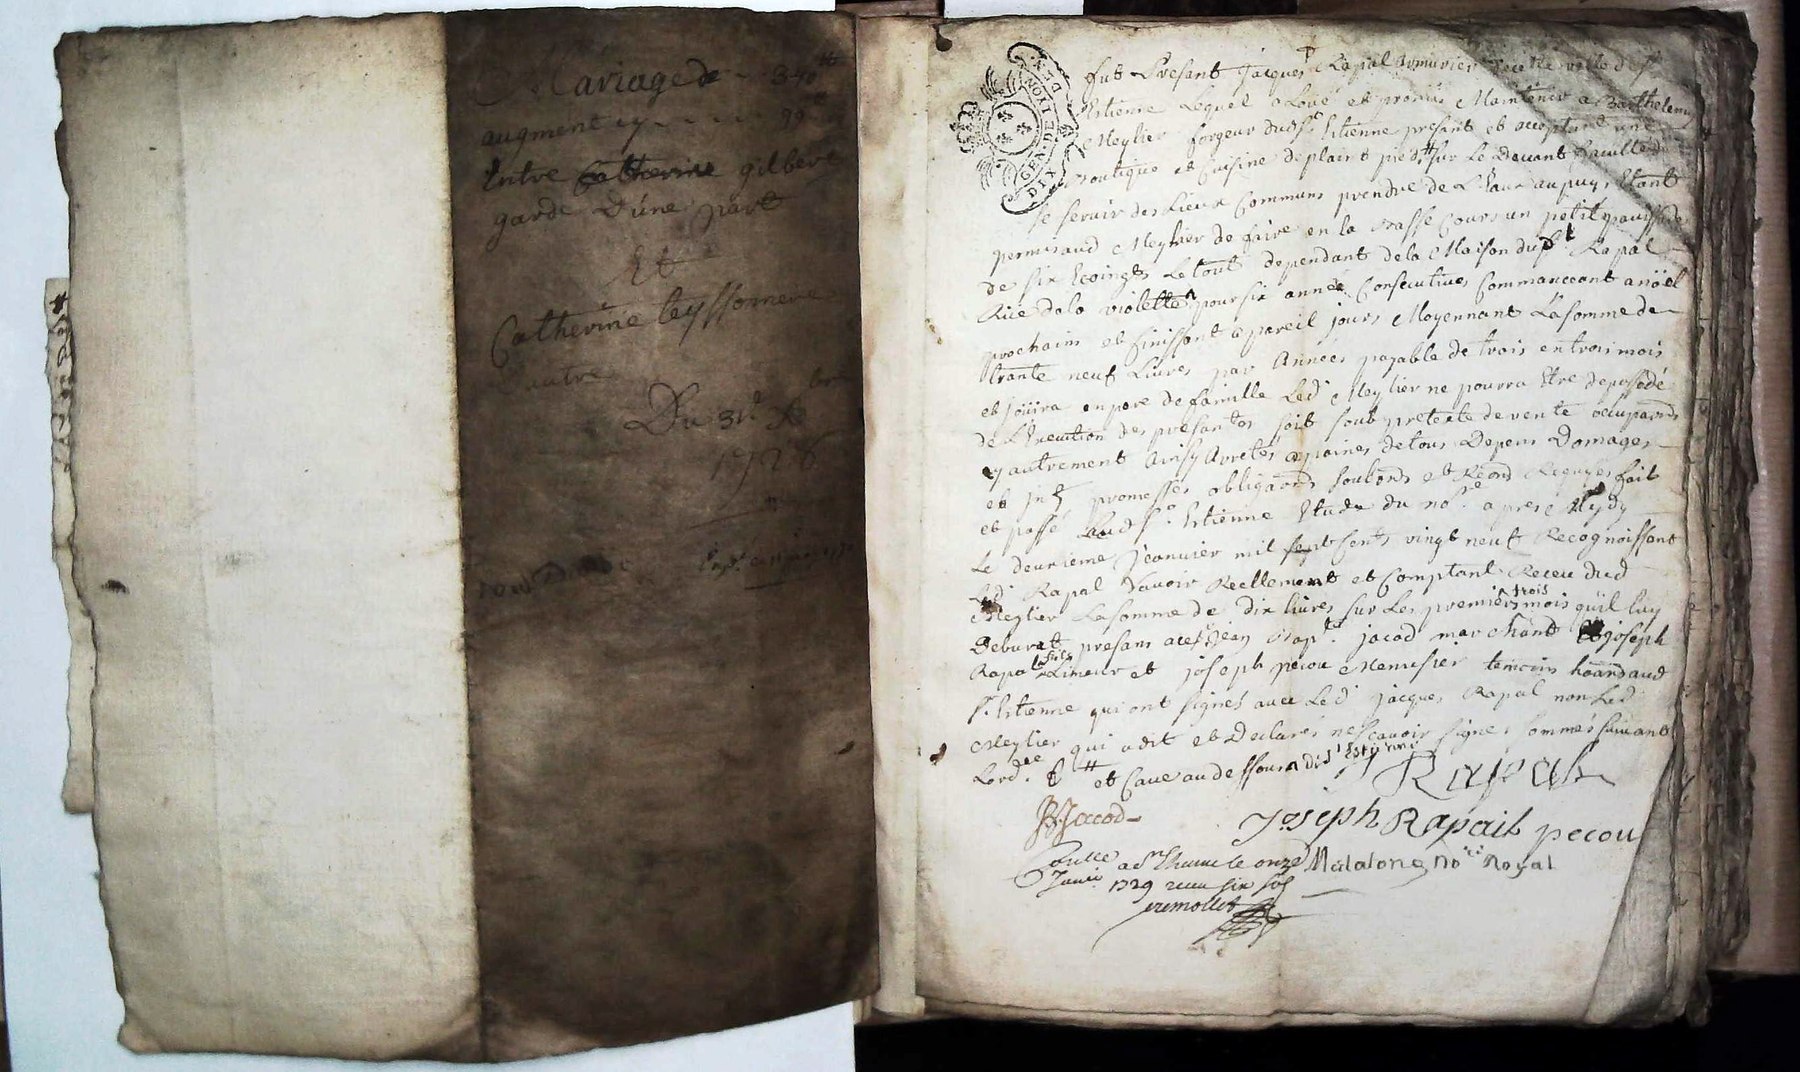 Mariage de - 340#
augment ey - - - - 99#
Entre Catherine gilbert
garde D'une part
Et
Catherine teyssonnere
autre
Du 31e Xbre
1726
GEN. DE LYON
DIX DEN.
fut Presant Jacques Rapal Armurier de cette ville de St
Etienne Lequel a Loué et promis Maintenir a Barthelemy
Meylier forgeur dudt St Etienne present et acceptant une
Boutique et Cuisine de plaint pied # sur Le Devant faculté de
se servir des Lieux Communs prendre de L'eaux au puys Etant
permis aud Meylier de faire en la Basse Cours un petit
de six Ecoingts Le tout dependant de la Maison dud Rapal
Rüe de la violette pour six année Consecutives Commanceant a noël
prochain et finissant a pareil jours Moyennant La somme de
trante neuf Livres par Années payable de trois en trois mois
et joüira en pere de famille Led Meylier ne pourra Etre depossedé
de L'Execution des presantes soit sout pretexte de vente
ey autrement Ainsy Arretés a paines de tous Depens Domages
et promesses obligaons soubons et Renons Requises fait
et passé aud St Etienne Etude du nore apres Mydy
Le deuxieme Jeanvier mil sept sents vingt neuf Recognoissant
Led Rapal d'avoir Reellement et Comptant Receu dud
Meylier La somme de dix livres sur Les premiers trois mois qu'il luy
Debvrat presans Jean Bapte jacod marchant joseph
Rapal fils Limeur et joseph pecou Menusier temoins
St Etienne qui ont signés avec Led Jacques Rapal non Led
Meylier qui a dit et Declarés ne scavoir signer sommés suivant
Lordce # et Cave au dessoura
Rapal
JB Jacod
Joseph Rapail pecou
a St Etienne le onze Malalong nore Royal
Janvr 1729 recu six sols